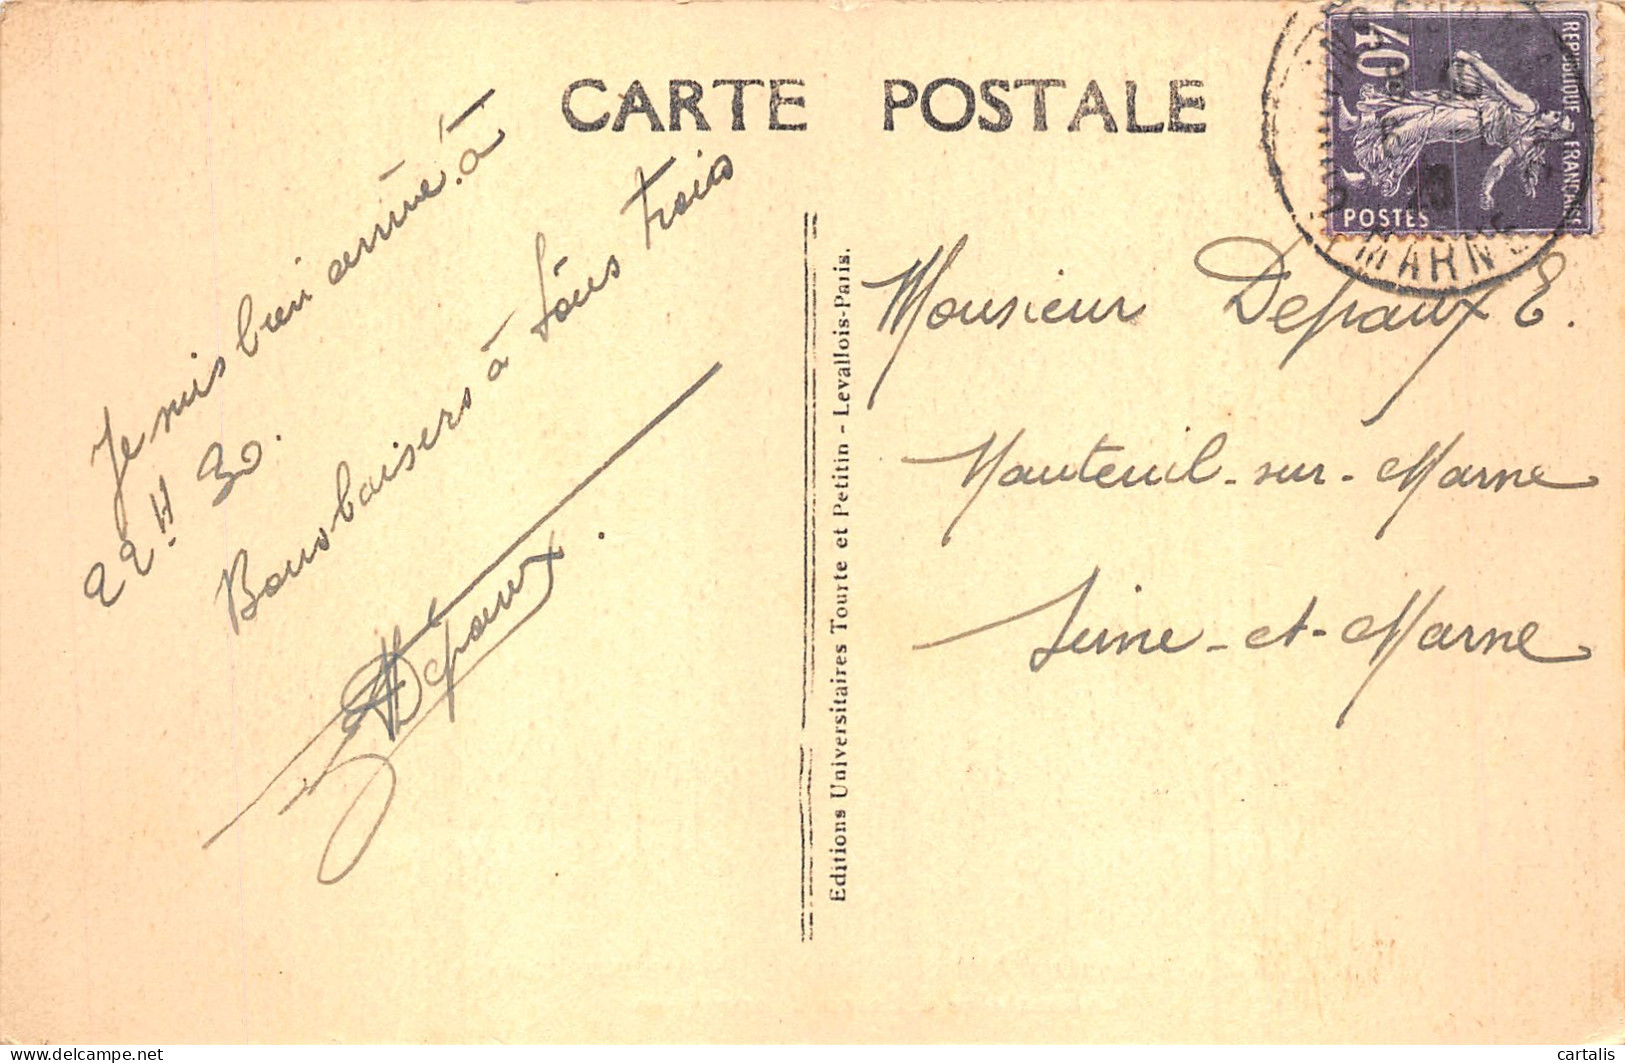 CARTE POSTALE
Je suis bien arrivé à
22 H 30.
Bons baisers à tous trois
Depaux.
Editions Universitaires Tourte et Petitin - Levallois-Paris.
REPUBLIQUE FRANÇAISE
40c
POSTES
MARNE
Monsieur Depaux E.
Nanteuil-sur-Marne
Seine-et-Marne
delcampe.net
cartalis